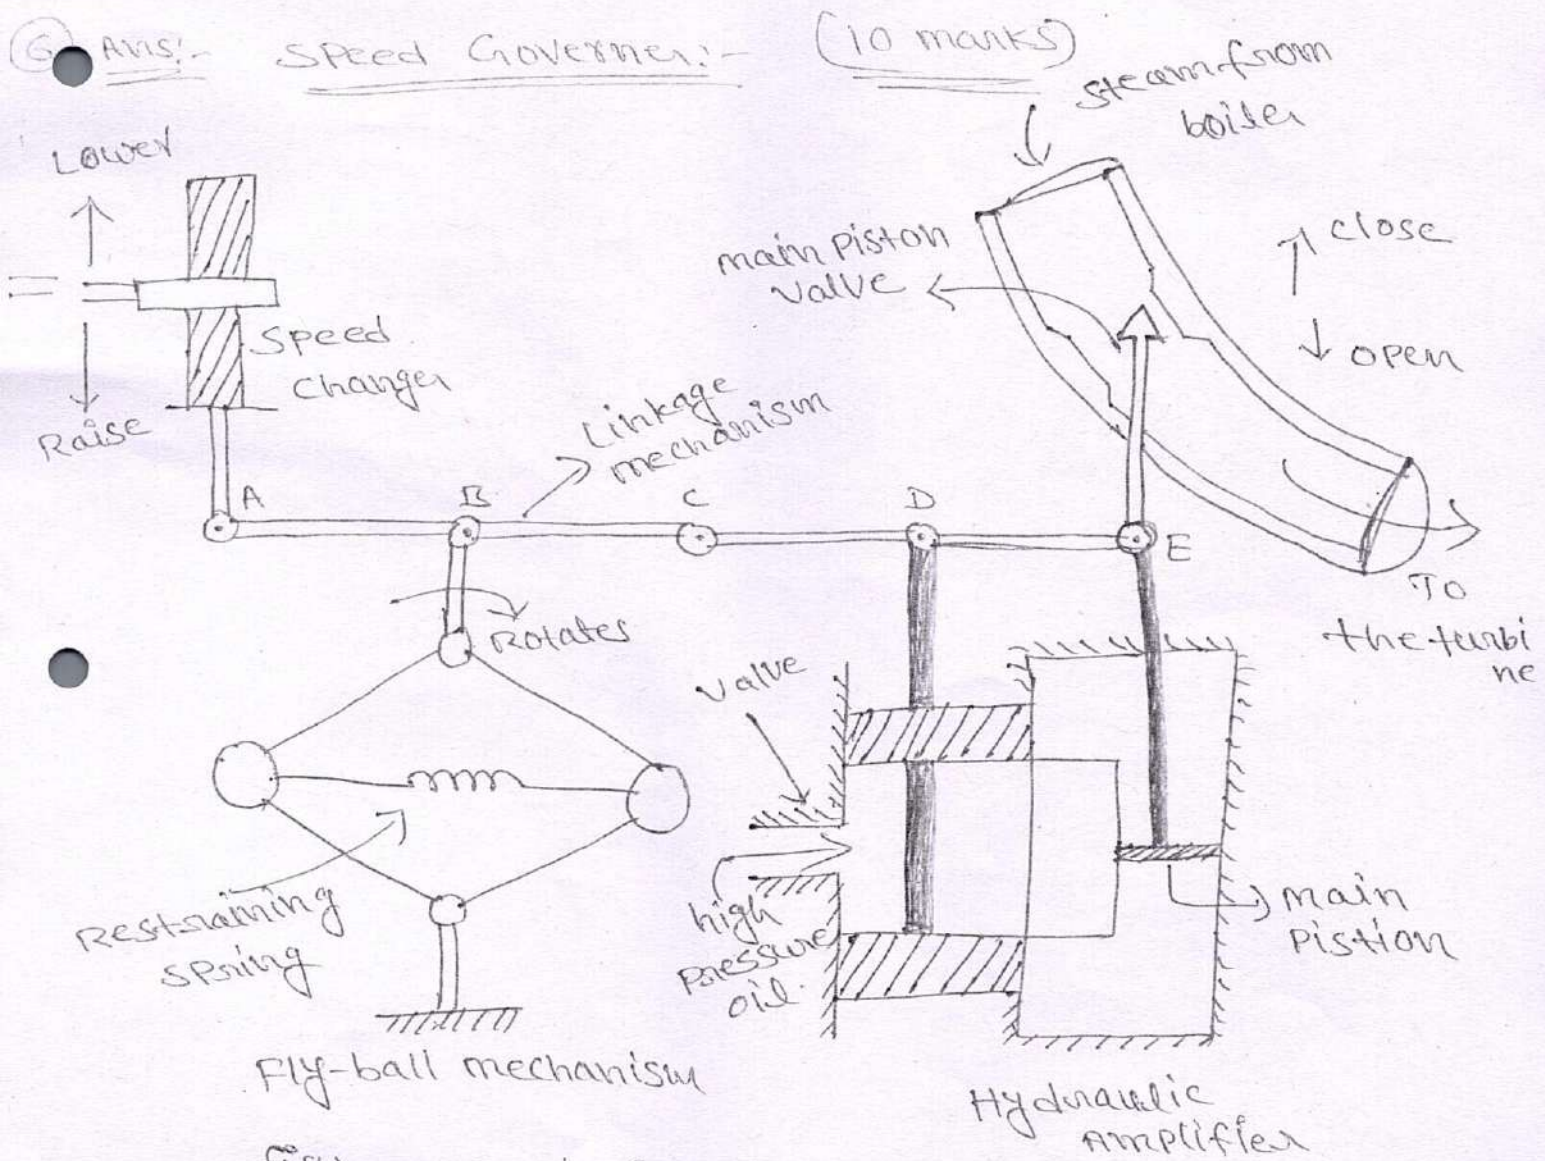 6 Ans:- Speed Governer:- (10 marks)
Steam from
boiler
Lower
main piston
valve
close
open
Speed
Changer
Raise
Linkage
mechanism
A
B
C
D
E
Rotates
To
the turbi
ne
valve
Restraining
spring
high
pressure
oil.
main
pistion
Fly-ball mechanism
Hydraulic
Amplifier